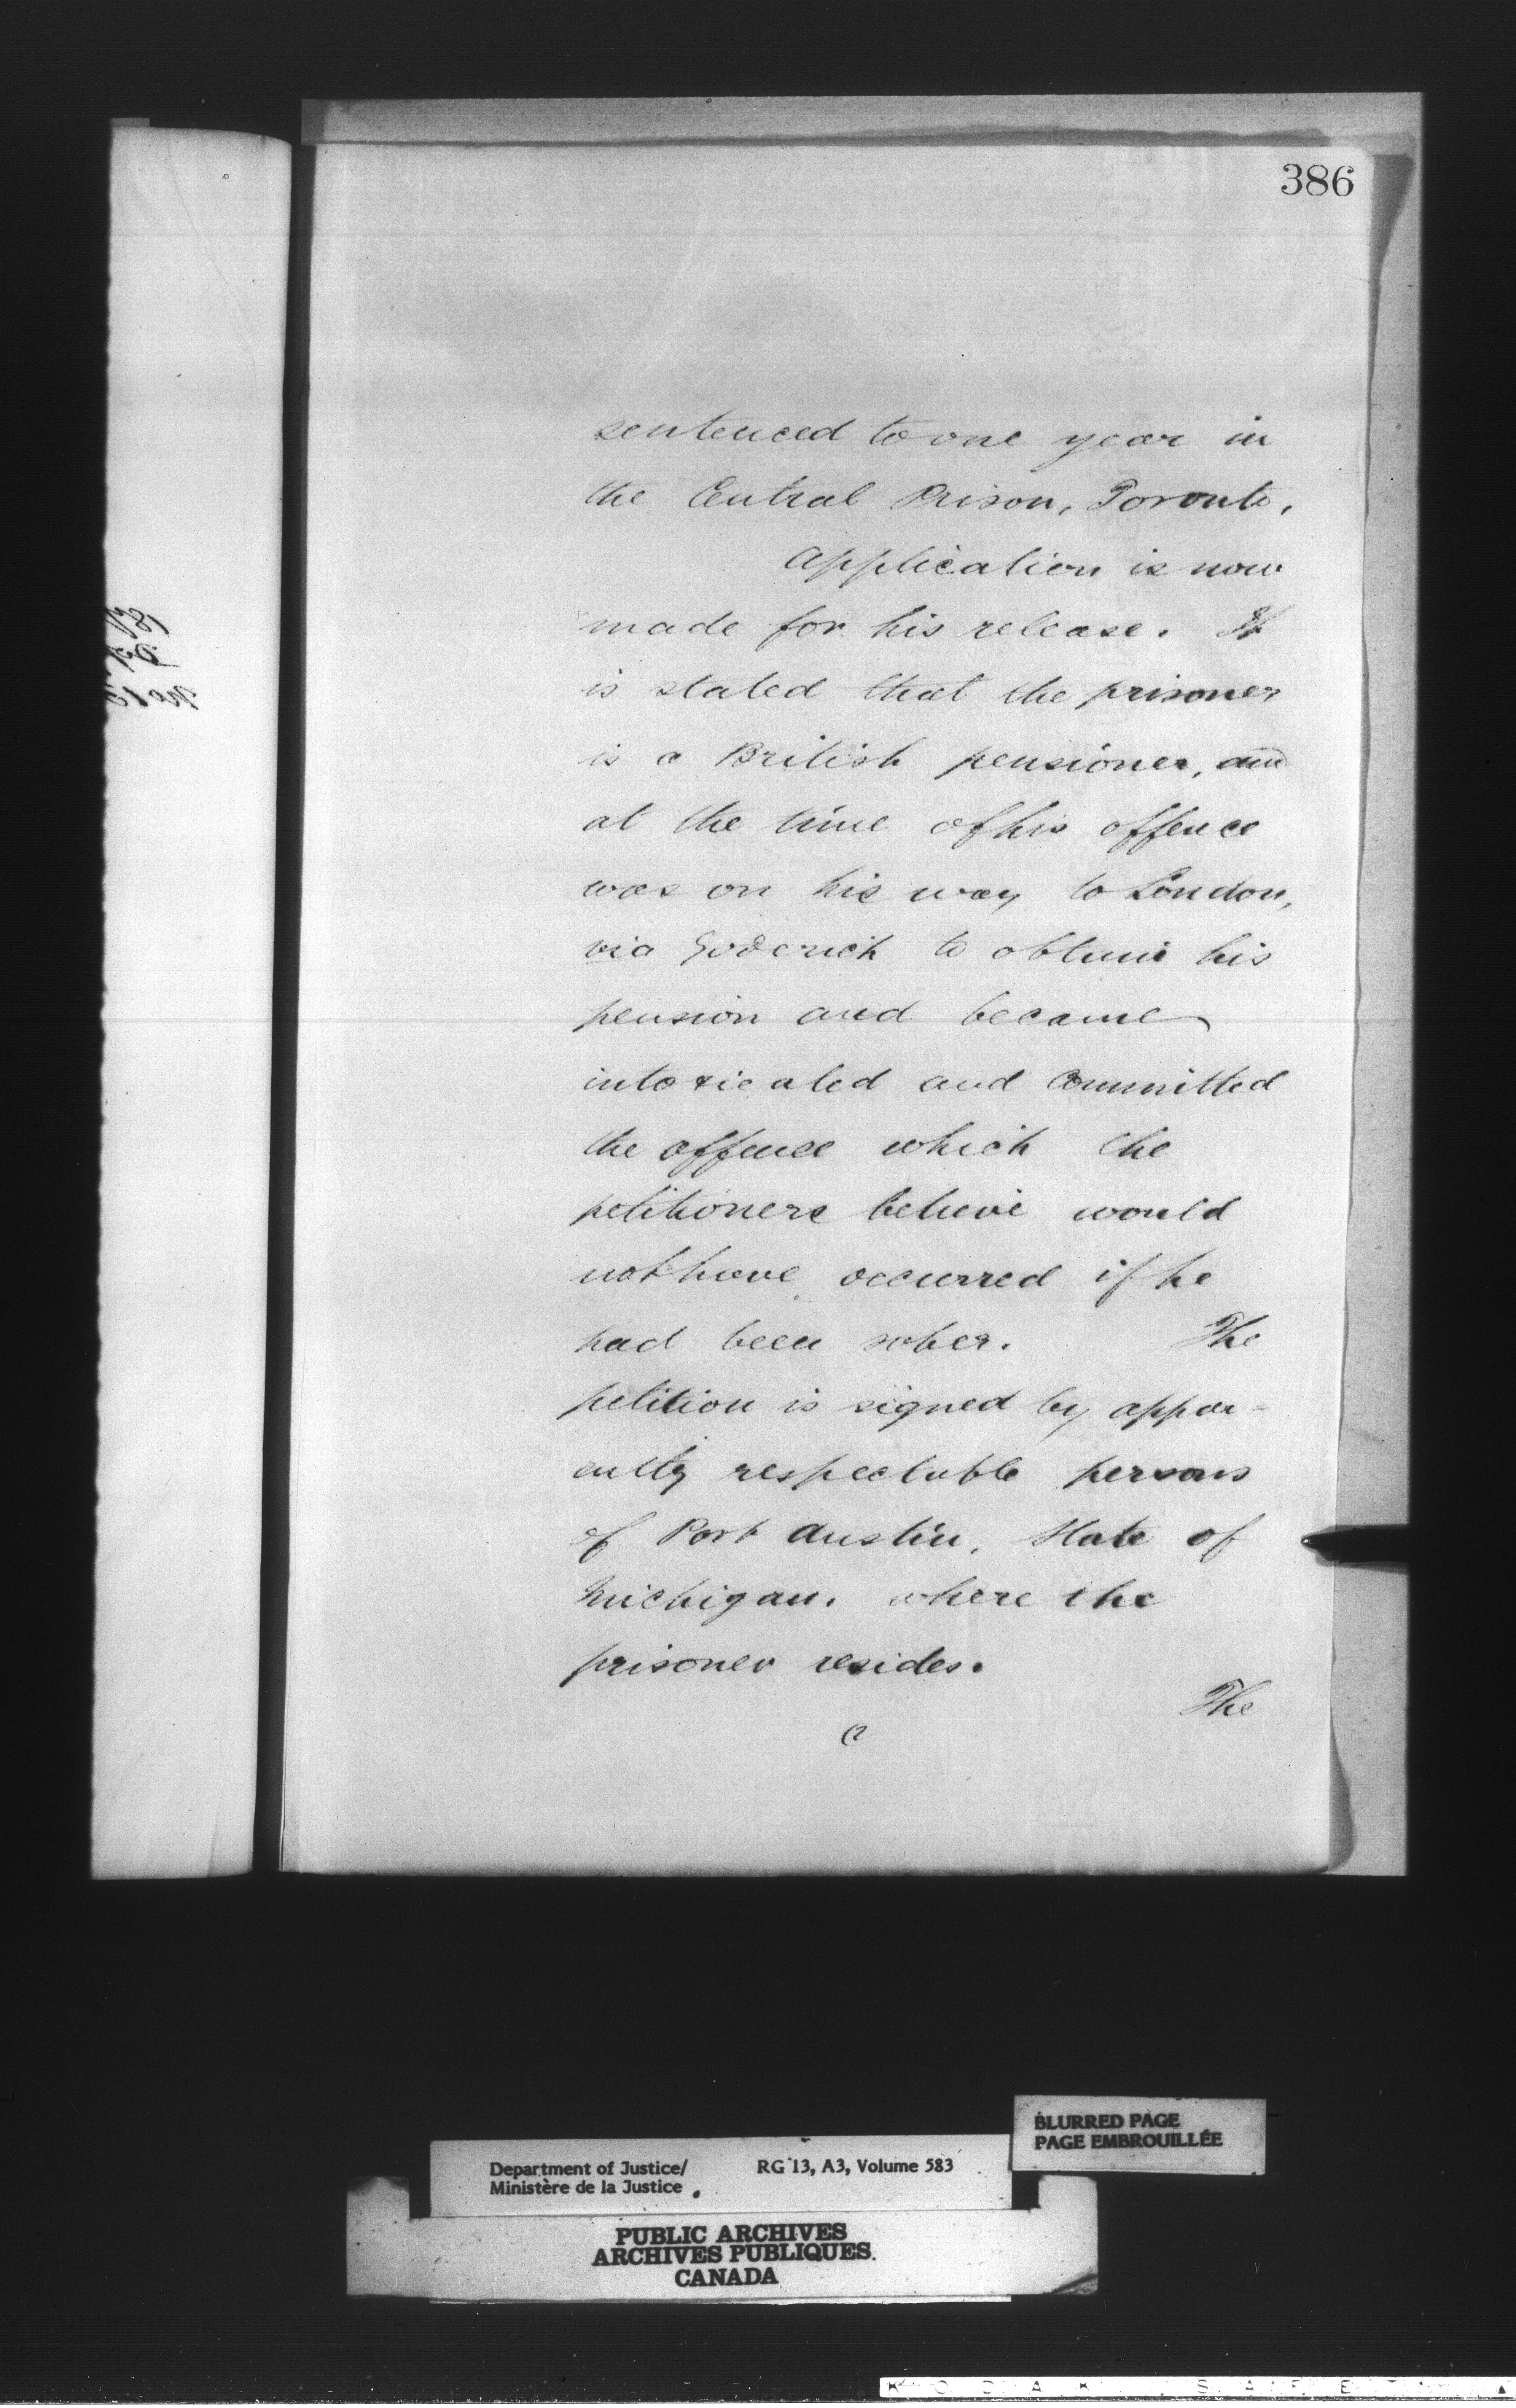 386
sentenced to one year in
the Central Prison, Toronto,
Application is now
made for his release. It
is stated that the prisoner
is a British pensioner, and
at the time of his offence
was on his way to London,
via Goderich to obtain his
pension and became
intoxicated and committed
the offence which the
petitioners believe would
not have occurred if he
had been sober. The
petition is signed by appar-
ently respectable persons
of Port Austin, State of
Michigan. where the
prisoner resides.
The
BLURRED PAGE
PAGE EMBROUILLÉE
Department of Justice/ RG 13, A3, Volume 583
Ministère de la Justice
PUBLIC ARCHIVES
ARCHIVES PUBLIQUES
CANADA
KODAK SAFETY